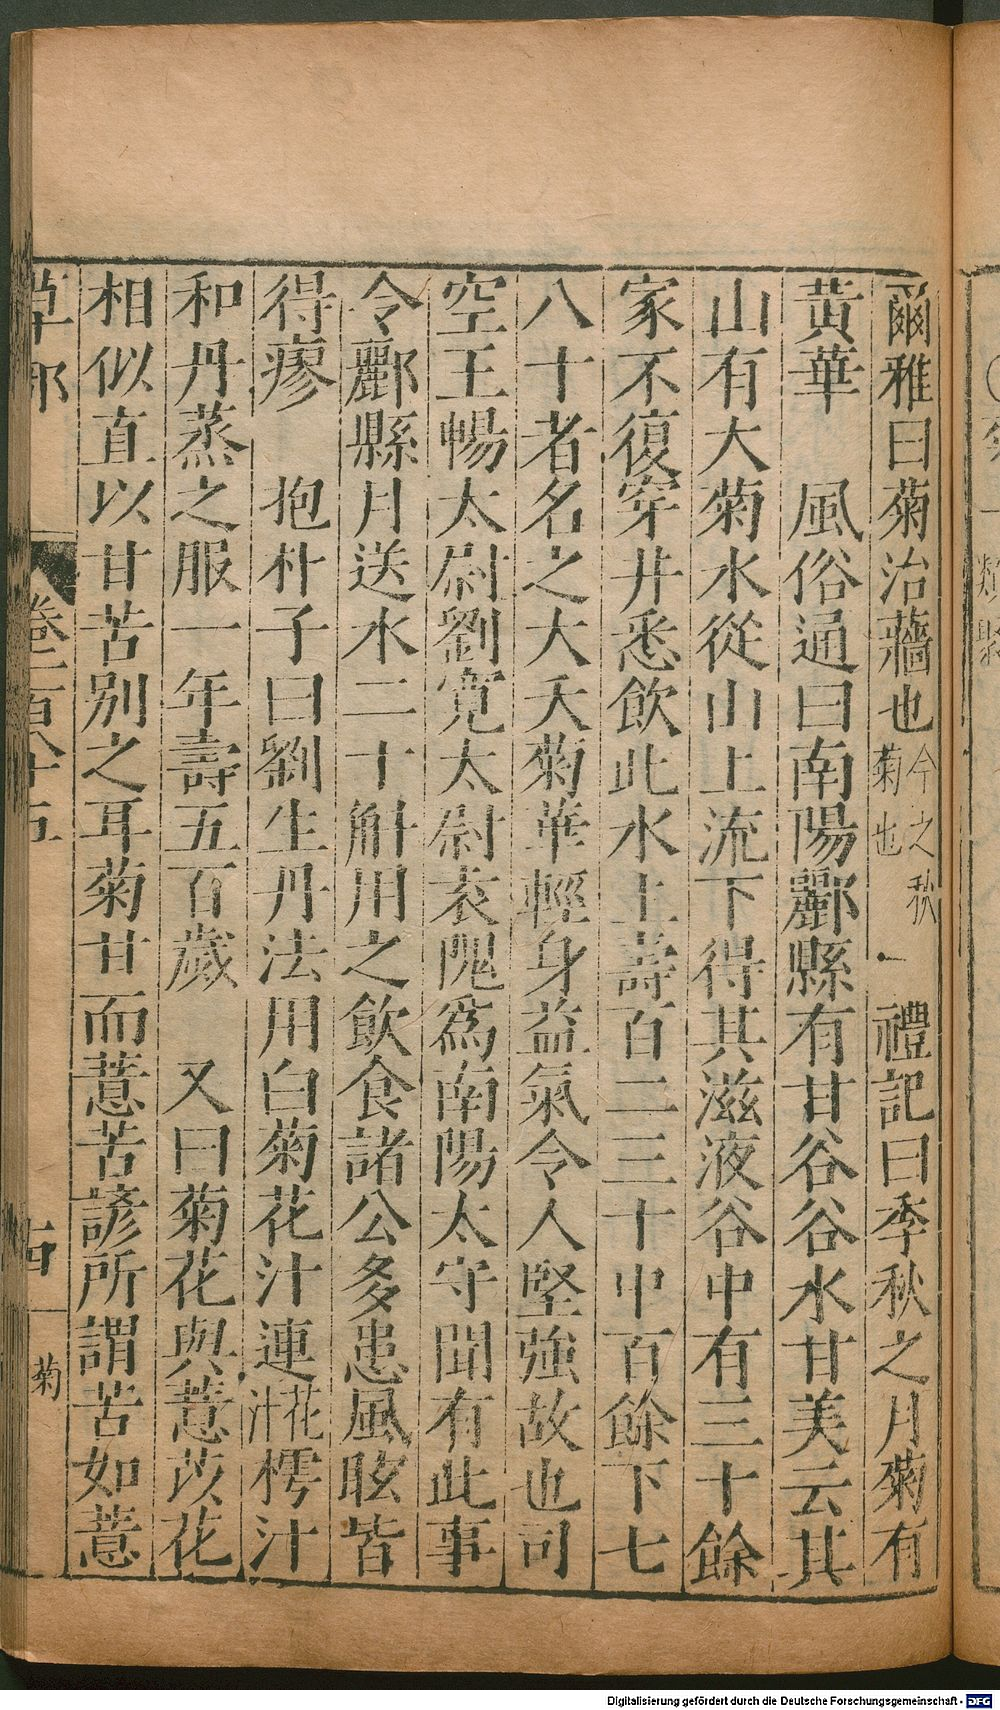 爾雅曰菊治蘠也今之秋菊也　禮記曰季秋之月菊有
黃華　風俗通曰南陽酈縣有甘谷谷水甘美云其
山有大菊水從山上流下得其滋液谷中有三十餘
家不復穿井悉飲此水上壽百二三十中百餘下七
八十者名之大夭菊華輕身益氣令人堅強故也司
空王暢太尉劉寬太尉袁隗爲南陽太守聞有此事
令酈縣月送水二十斛用之飲食諸公多患風眩皆
得瘳　抱朴子曰劉生丹法用白菊花汁連花汁樗汁
和丹蒸之服一年壽五百歲　又曰菊花與薏苡花
相似直以甘苦別之耳菊甘而薏苦諺所謂苦如薏
草部　卷二百八十五　菊
Digitalisierung gefördert durch die Deutsche Forschungsgemeinschaft - DFG